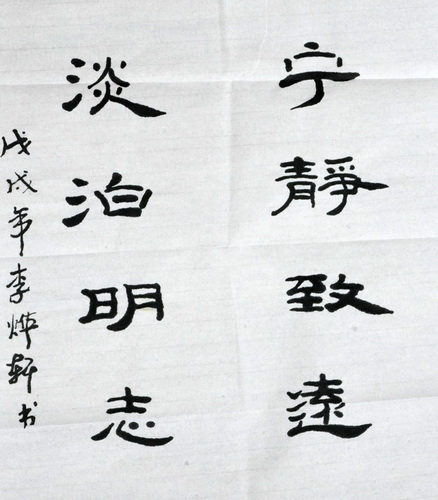 宁靜致遠
淡泊明志
戊戌年李烨轩书